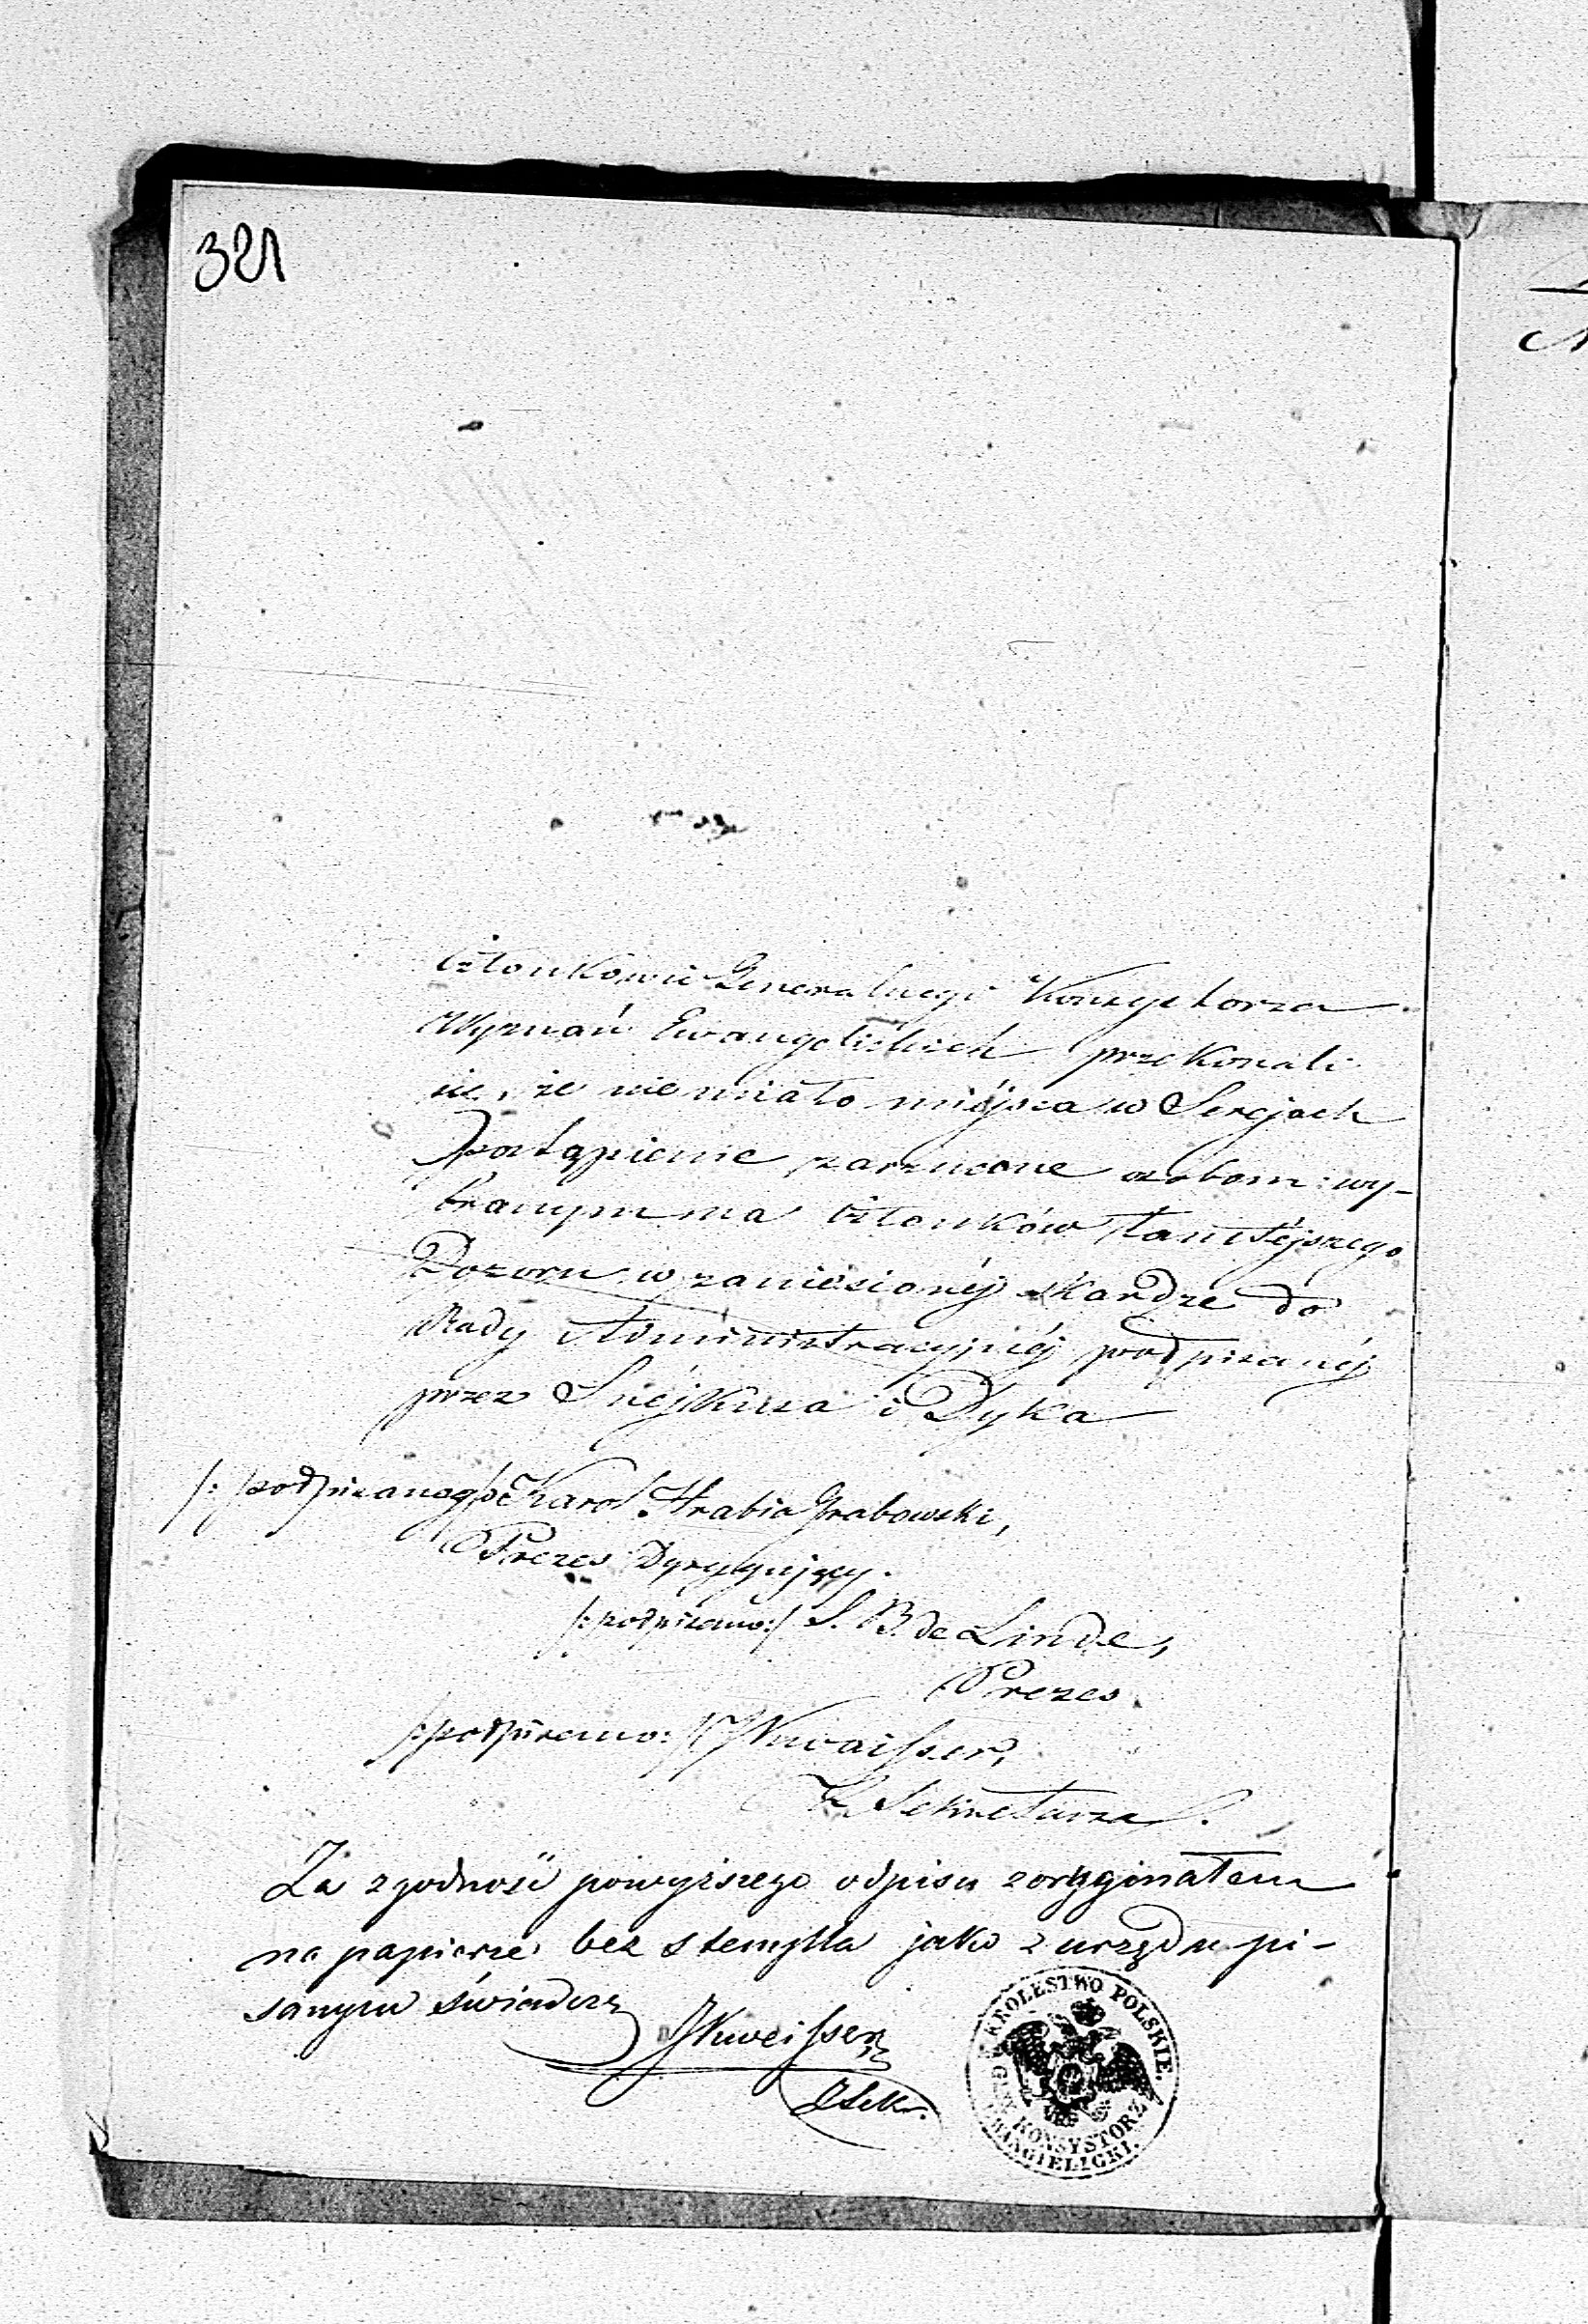 321
Członkowie Generalnego Konsystorza
Wyznań Ewangelickich przekonali
się, że nie miało miejsca w Serejach
postąpienie zarzucone osobom wy-
branym na Członków tamtéjszego
Dozoru w zaniesionéj skardze do
Rady Administracyjnéj podpisanéj
przez i Dyka
/: podpisano :/ Karol Hrabia Grabowski,
Prezes Dyrygujący.
/: podpisano :/ S. B. de Linde,
Prezes.
/: podpisano :/
Z. Sekretarza.
Za zgodność powyższego odpisu z oryginałem
na papierze bez stempla jako z urzędu pi-
sanym świadczę
Z Sekr.
KROLESTWO POLSKIE.
KONSYSTORZ
EWANGIELICKI.